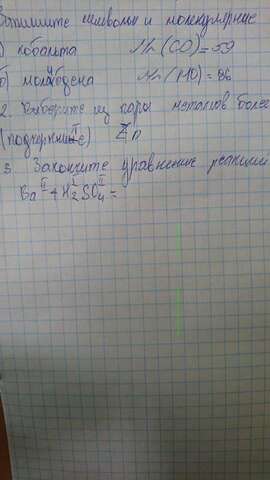 Запишите символы и молекулярные
а) кобальта Mr(CO)=59
б) молибдена Mr(MO)=96
2. Выберите из пары металлов более
(подчеркните) Zn
3. Закончите уравнение реакции
Ba + H₂SO₄ =